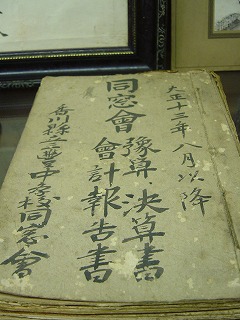 大正十三年八月以降
同窓會
豫算決算書
會計報告書
香川縣立三豊中学校同窓會